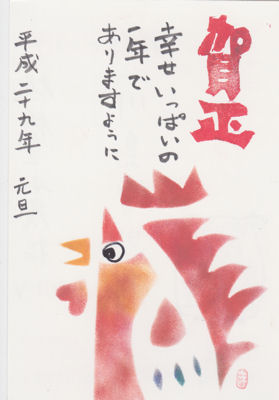 賀正
幸せいっぱいの
一年で
ありますように
平成二十九年 元旦